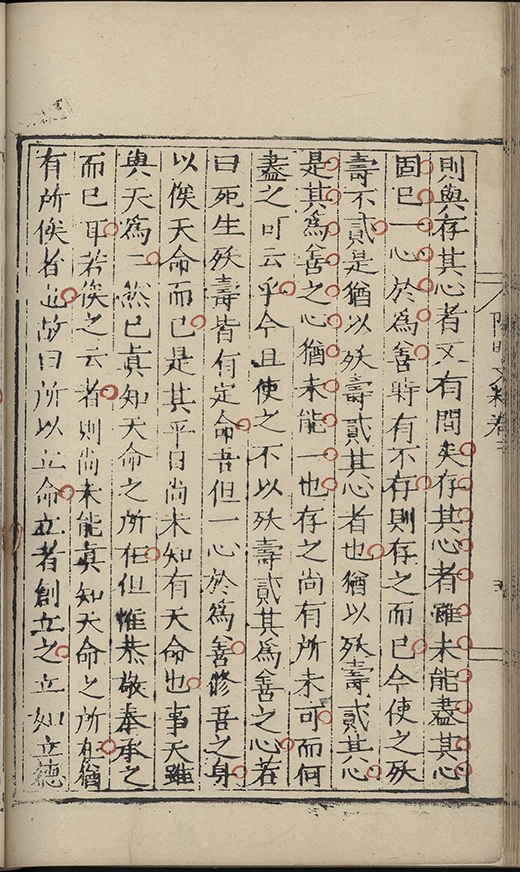 則與存其心者又有間矣存其心者雖未能盡其心
固已一心於為善時有不存則存之而已今使之殀
壽不貳是猶以殀壽貳其心者也猶以殀壽貳其心
是其為善之心猶未能一也存之尚有所未可而何
盡之可云乎今且使之不以殀壽貳其為善之心若
曰死生殀壽皆有定命吾但一心於為善修吾之身
以俟天命而已是其平日尚未知有天命也事天雖
與天為二然已真知天命之所在但惟恭敬奉承之
而已耳若俟之云者則尚未能真知天命之所在猶
有所俟者也故曰所以立命立者創立之立如立德
陽明文粹卷